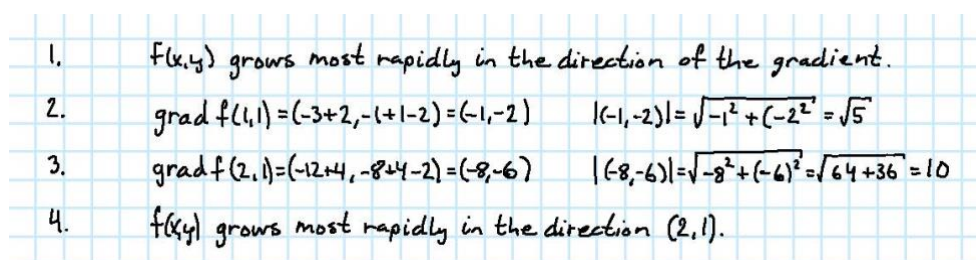 1. f(x,y) grows most rapidly in the direction of the gradient.
2. grad f(1,1) = (-3+2, -1+1-2) = (-1,-2) |(-1,-2)| = √-1² + (-2² = √5
3. grad f (2,1) = (-12+4, -8+4-2) = (-8,-6) |(-8,-6)| = √-8² + (-6)² = √64+36 = 10
4. f(x,y) grows most rapidly in the direction (2,1).